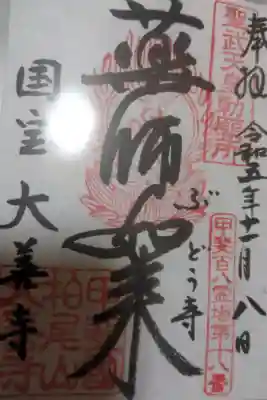 奉拝 令和五年十一月八日
聖武天皇勅願所
甲斐百八霊場第十八番
ぶどう寺
薬師如来
国宝 大善寺
甲州
柏尾山
大善寺